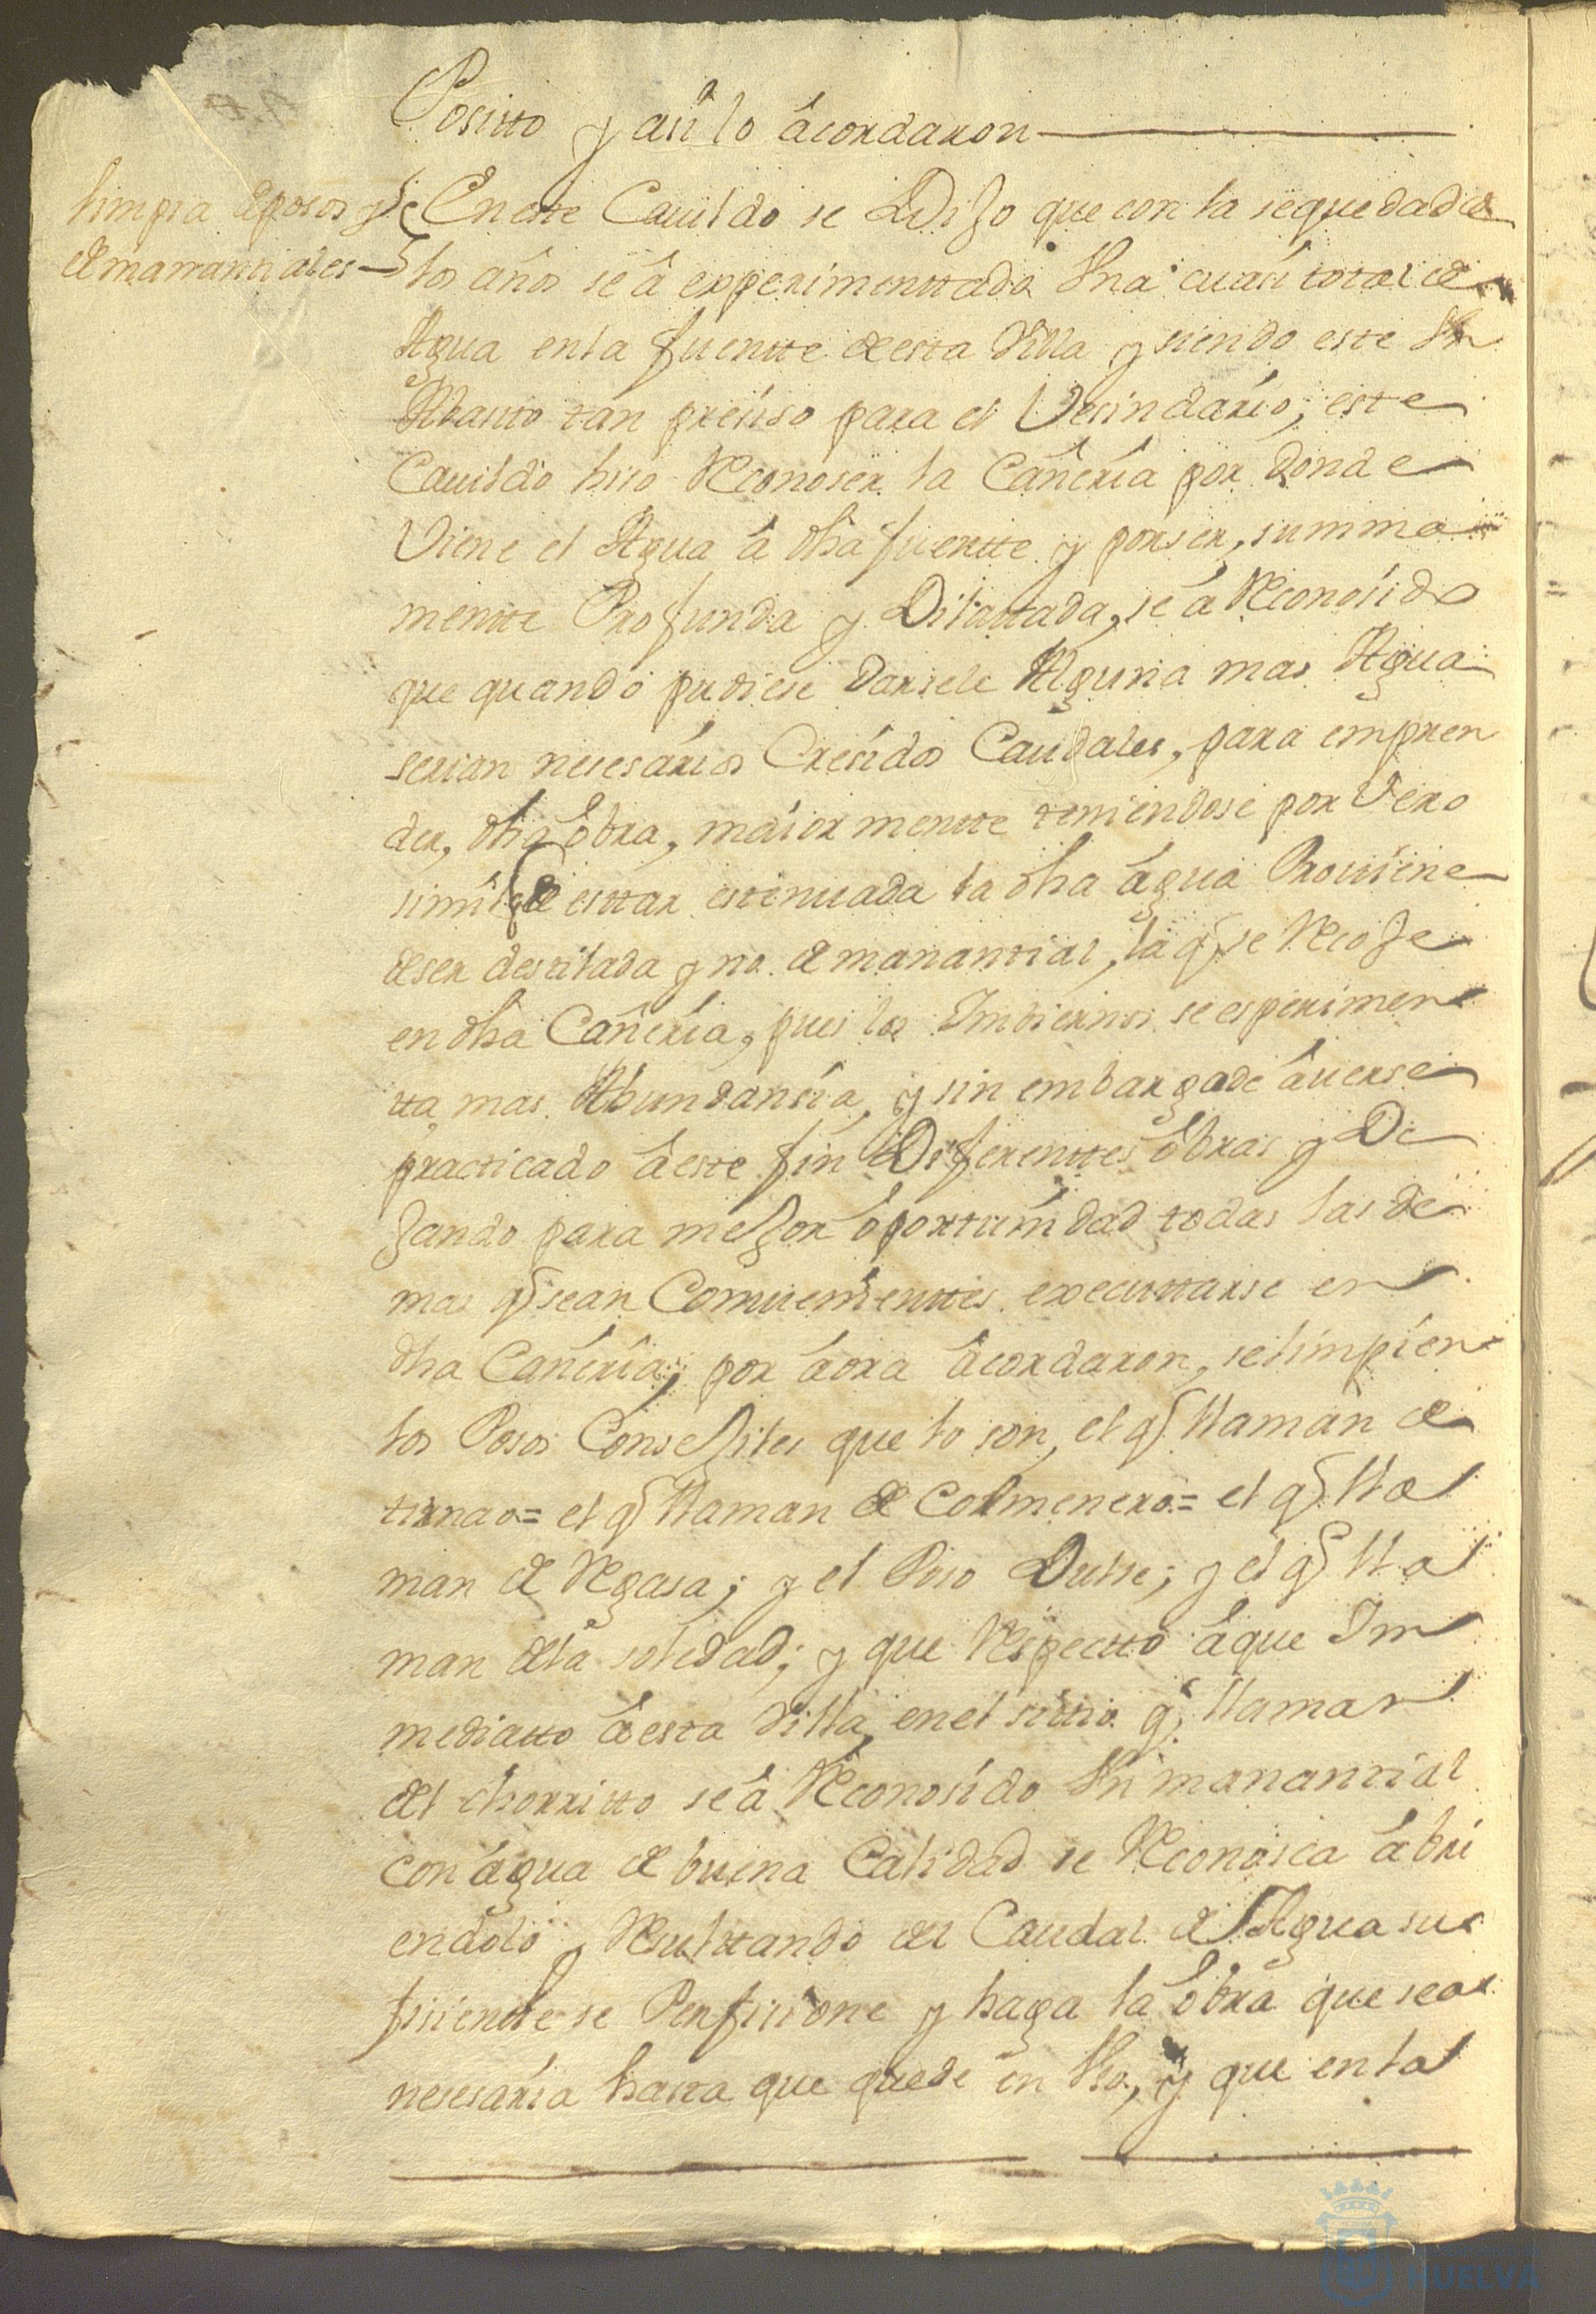 Positto y asi lo acordaron
limpia de posos y
de manantiales
En este Cauildo se Dijo que con la sequedad de
los años se â experimenttado Vna cuasi total de
Agua en la fuentte de esta Villa y siendo este Vn
Abasto tan presiso para el Vesindario, este
Cauildo hiso Reconoser la Cañeria por donde
Viene el Agua â dha fuentte y por ser, summa
mentte Profunda y Dilattada, se â Reconosido
que quando pudiese darsele Alguna mas Agua
serian nesesarios Cresidos Caudales, para empren
der, dha obra, maiormentte teniendose por Vero
simil de esttar estenuada la dha agua Prouiene
de ser destilada y no de manantial, la q se Recoje
en dha Cañeria, pues los Imbiernos se esperimen
tta mas Abundansia, y sin embargo de auerse
practicado â este fin Diferenttes obras y De
jando para mejor oportunidad todas las de
mas q sean Conuenienttes executtarse en
dha Cañeria; por aora acordaron, se limpien
los Posos Consejiles que lo son, el q llaman de
= el q llaman de Colmenero = el q lla
man de Regasa; y el Poso Dulse; y el q lla
man de la soledad; y que Respectto â que Im
mediatto â esta Villa, en el sittio q llaman
del chorritto se â Reconosido Vn manantial
con agua de buena Calidad se Reconosca abri
endolo y Resulttando del Caudal de Agua su
fisientte se Perfisione y haga la obra que sea
nesesaria hasta que quede en Vso, y que en la
HUELVA